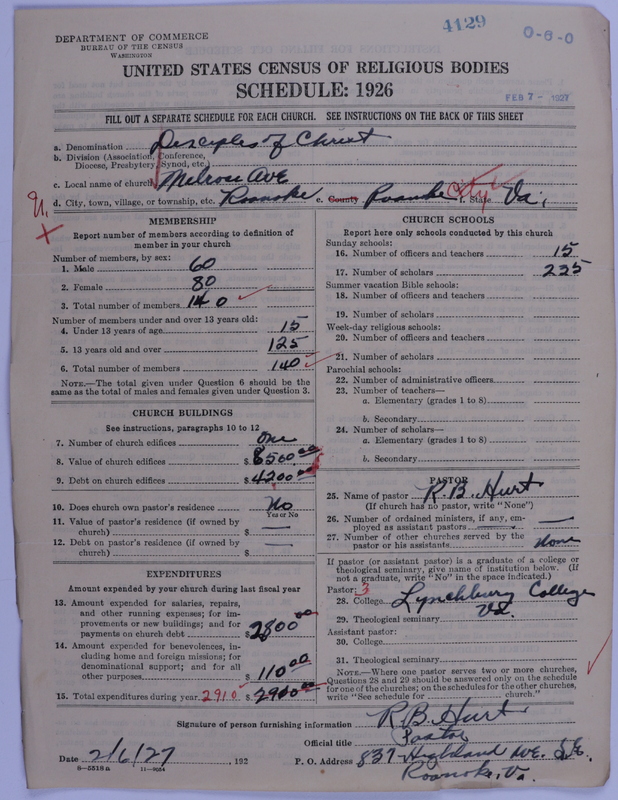 4129
0-6-0
DEPARTMENT OF COMMERCE
BUREAU OF THE CENSUS
WASHINGTON
UNITED STATES CENSUS OF RELIGIOUS BODIES
SCHEDULE: 1926
FEB 7 - 1927
FILL OUT A SEPARATE SCHEDULE FOR EACH CHURCH. SEE INSTRUCTIONS ON THE BACK OF THIS SHEET
a. Denomination Disciples of Christ
b. Division (Association, Conference, Diocese, Presbytery, Synod, etc.)
c. Local name of church Melrose Ave
d. City, town, village, or township, etc. Roanoke e. County Roanoke City f. State Va.
MEMBERSHIP
Report number of members according to definition of
member in your church
Number of members, by sex:
1. Male 60
2. Female 80
3. Total number of members 140
Number of members under and over 13 years old:
4. Under 13 years of age 15
5. 13 years old and over 125
6. Total number of members 140
NOTE.—The total given under Question 6 should be
same as the total of males and females given under Question 3.
CHURCH BUILDINGS
See instructions, paragraphs 10 to 12
7. Number of church edifices One
8. Value of church edifices $ 8500.00
9. Debt on church edifices $ 4200.00
10. Does church own pastor's residence No
Yes or No
11. Value of pastor's residence (if owned by
church) $ —
12. Debt on pastor's residence (if owned by
church) $ —
EXPENDITURES
Amount expended by your church during last fiscal year
13. Amount expended for salaries, repairs,
and other running expenses; for im-
provements or new buildings; and for
payments on church debt $ 2800.00
14. Amount expended for benevolences, in-
cluding home and foreign missions; for
denominational support; and for all
other purposes $ 110.00
15. Total expenditures during year 2910 $ 2900.00
CHURCH SCHOOLS
Report here only schools conducted by this church
Sunday schools:
16. Number of officers and teachers 15
17. Number of scholars 225
Summer vacation Bible schools:
18. Number of officers and teachers
19. Number of scholars
Week-day religious schools:
20. Number of officers and teachers
21. Number of scholars
Parochial schools:
22. Number of administrative officers
23. Number of teachers—
a. Elementary (grades 1 to 8)
b. Secondary
24. Number of scholars—
a. Elementary (grades 1 to 8)
b. Secondary
PASTOR
25. Name of pastor R.B. Hurt
(If church has no pastor, write "None")
26. Number of ordained ministers, if any, em-
ployed as assistant pastors —
27. Number of other churches served by the
pastor or his assistants None
If pastor (or assistant pastor) is a graduate of a college or
theological seminary, give name of institution below. (If
not a graduate, write "No" in the space indicated.)
Pastor: 3
28. College Lynchburg College
Va.
29. Theological seminary
Assistant pastor:
30. College
31. Theological seminary
NOTE.—Where one pastor serves two or more churches,
Questions 28 and 29 should be answered only on the schedule
for one of the churches; on the schedules for the other churches,
write "See schedule for church."
Signature of person furnishing information R.B. Hurt
Official title Pastor
Date 2/6/27, 192 P. O. Address 837 Highland Ave. S.E.
Roanoke, Va.
8—5518a 11—9054